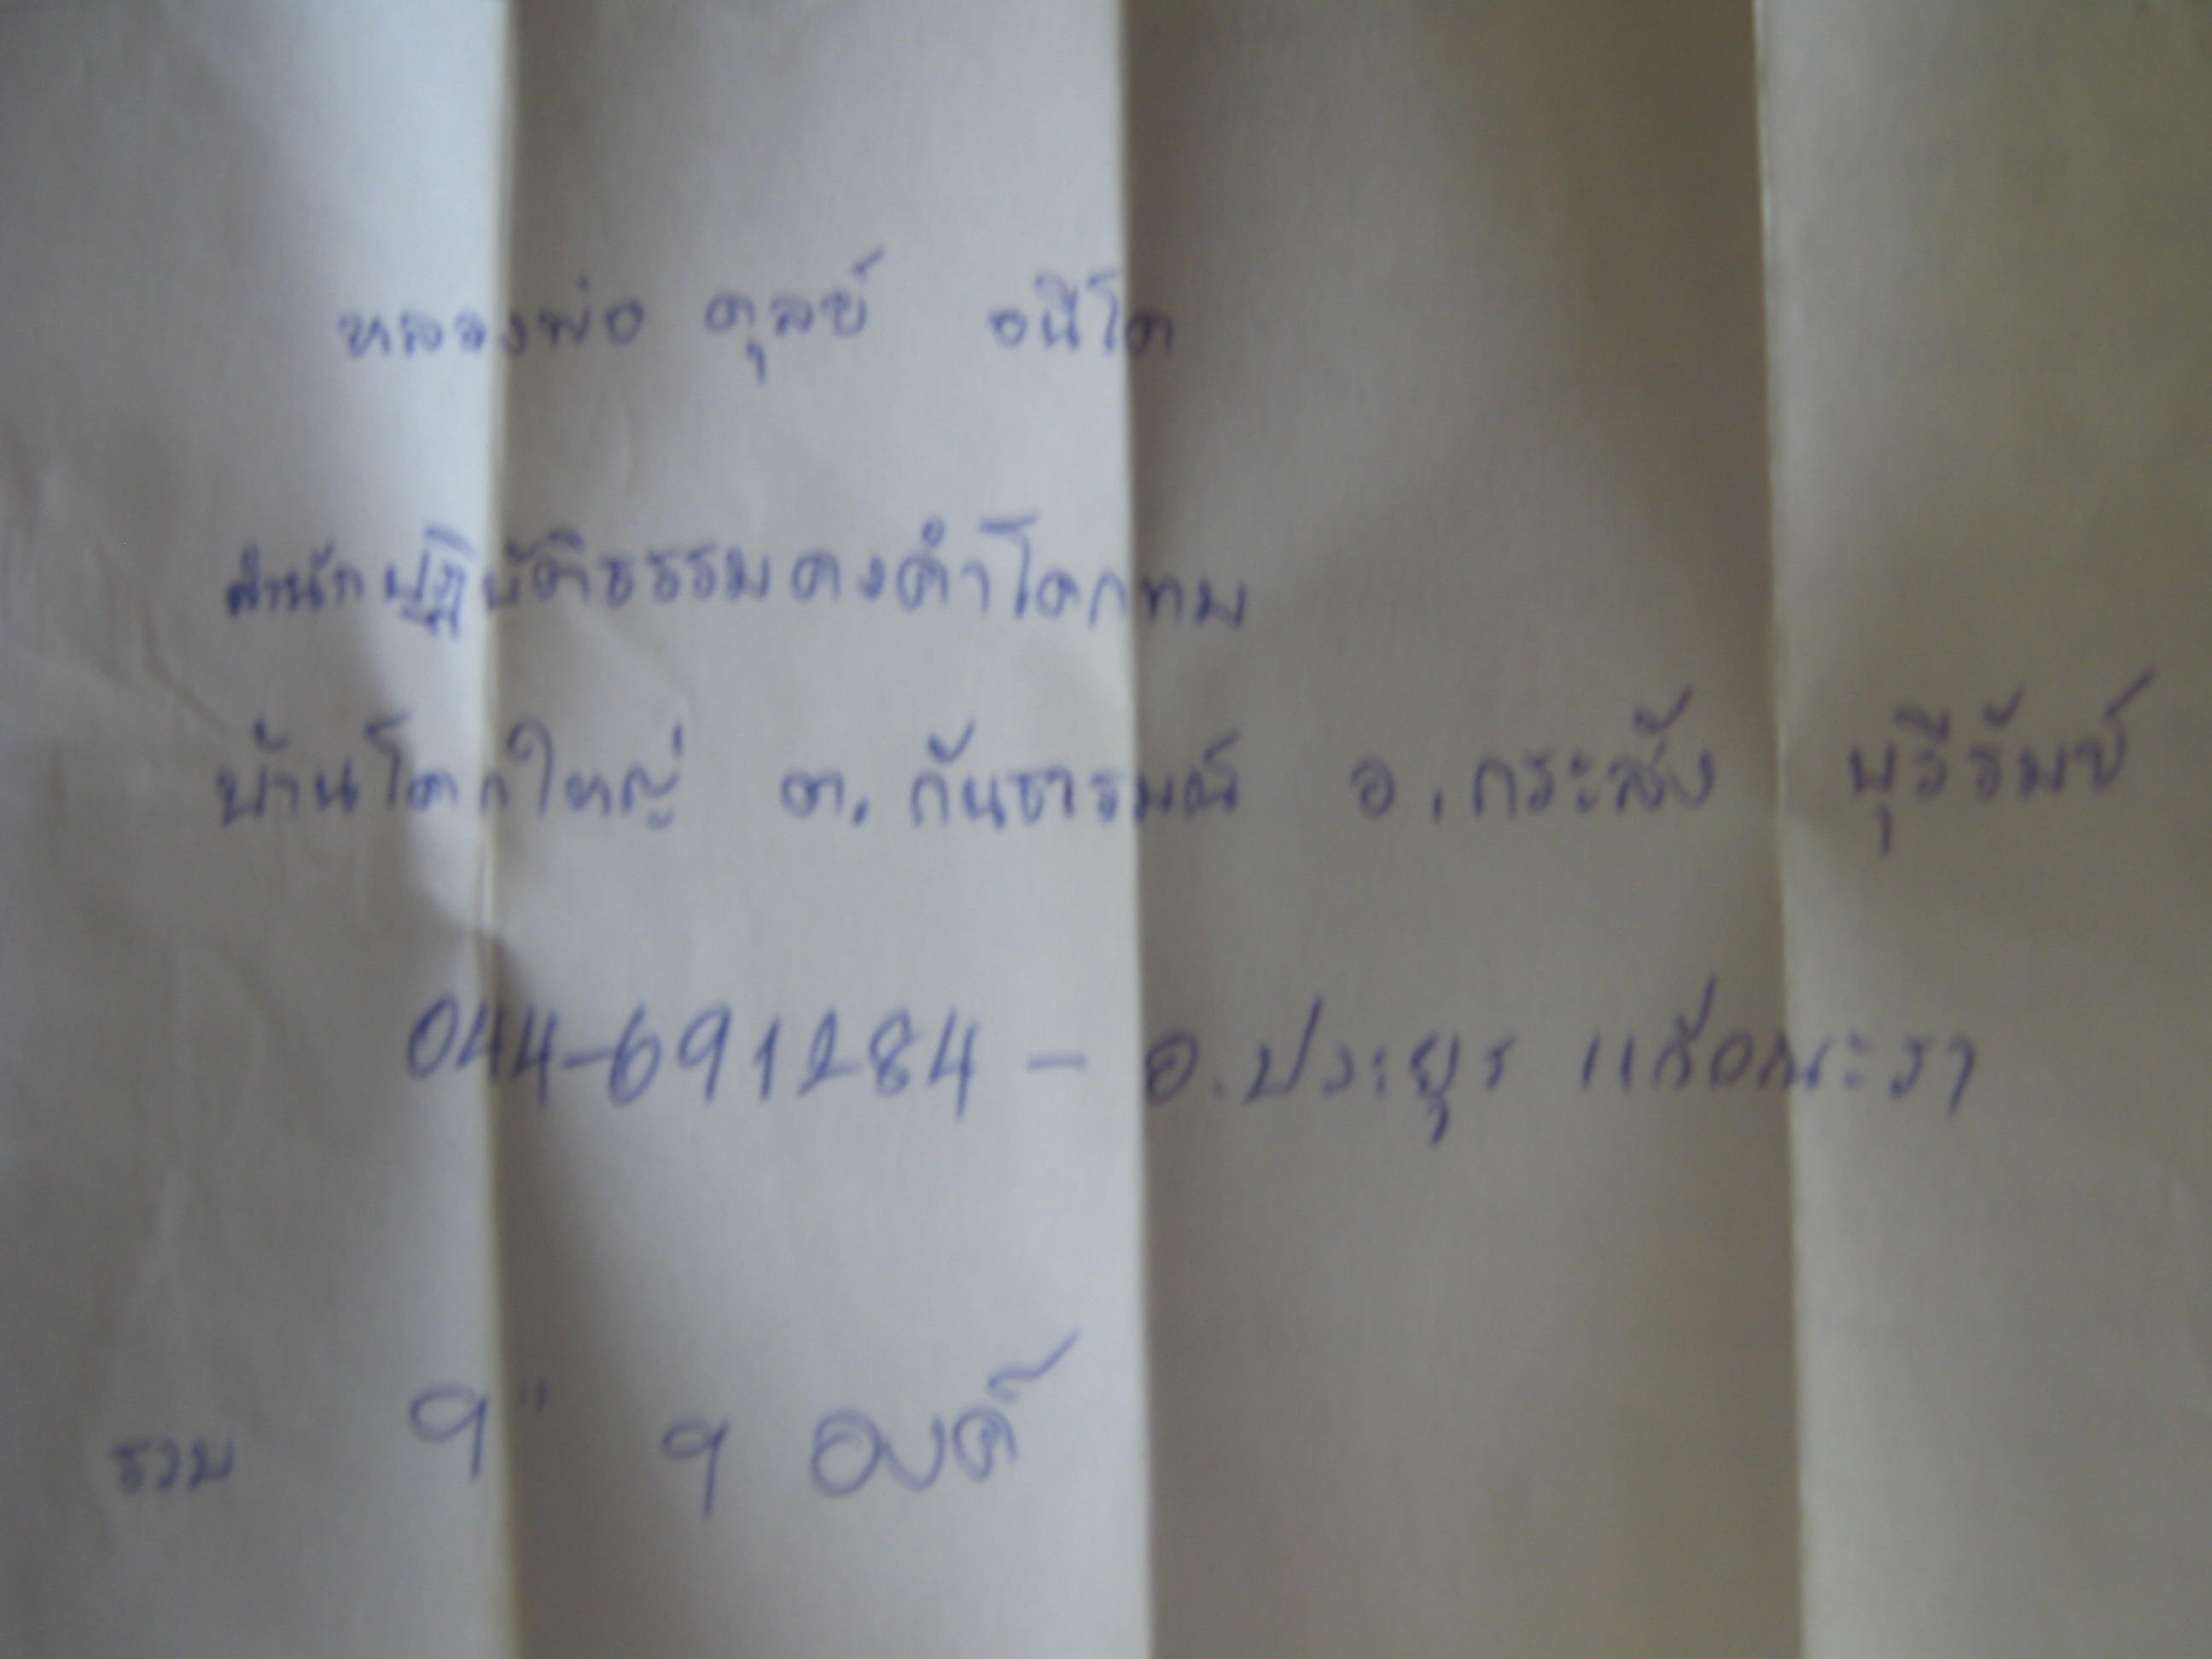 หลวงพ่อ ดุลย์ อนีโค
สำนักปฏิบัติธรรมดงคำโคกทม
บ้านโคกใหญ่ ต. กันธารมณ์ อ. กระสัง บุรีรัมย์
044-691284 - อ. ประยูร
รวม 9" 9 องค์